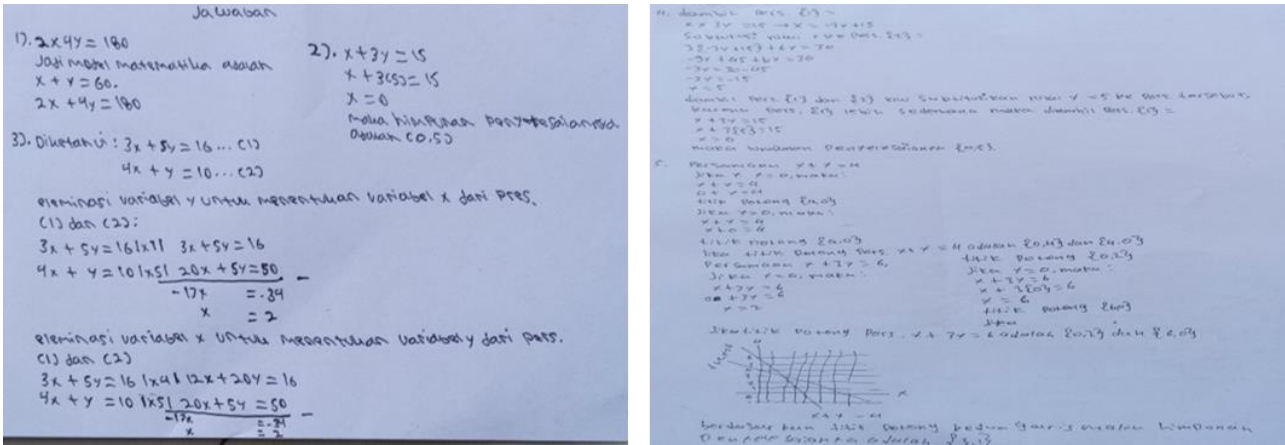 Jawaban
1). 2x 4y = 180
Jadi model matematika adalah
x + y = 60.
2x + 4y = 180
2). x + 3y = 15
x + 3(5) = 15
x = 0
maka himpunan penyelesaiannya
adalah (0,5)
3). Diketahui : 3x + 5y = 16 ... (1)
4x + y = 10 ... (2)
eleminasi variabel y untuk menentukan variabel x dari pres.
(1) dan (2):
3x + 5y = 16 |x1| 3x + 5y = 16
4x + y = 10 |x5| 20x + 5y = 50 -
-17x = -34
x = 2
eleminasi variabel x untuk menentukan variabel y dari pers.
(1) dan (2)
3x + 5y = 16 |x4| 12x + 20y = 16
4x + y = 10 |x5| 20x + 5y = 50 -
-17x = -34
x = 2
4. diambil pers. {1} =
x + 3y = 15 → x = -3y + 15
3{-3y + 15} + 6y = 30
-9y + 45 + 6y = 30
-3y = 30 - 45
-3y = -15
y = 5
x + 3y = 15
x + 3{5} = 15
x = 0
maka himpunan penyelesaiannya {0,5}.
5. Persamaan x + y = 4
Jika x = 0, maka :
x + y = 4
0 + y = 4
titik potong
Jika y = 0, maka :
x + y = 4
x + 0 = 4
titik potong {4,0}
Jika titik potong pers. x + y = 4 adalah {0,4} dan {4,0}
Persamaan x + 3y = 6,
Jika x = 0, maka :
x + 3y = 6
0 + 3y = 6
y = 2
titik potong {0,2}
Jika y = 0, maka :
x + 3y = 6
x + 3{0} = 6
x = 6
titik potong {6,0}
Jika titik potong pers. x + 3y = 6 adalah {0,2} dan {6,0}
x
x + y = 4
berdasarkan titik potong kedua garis maka himpunan
penyelesaianya adalah {3,1}